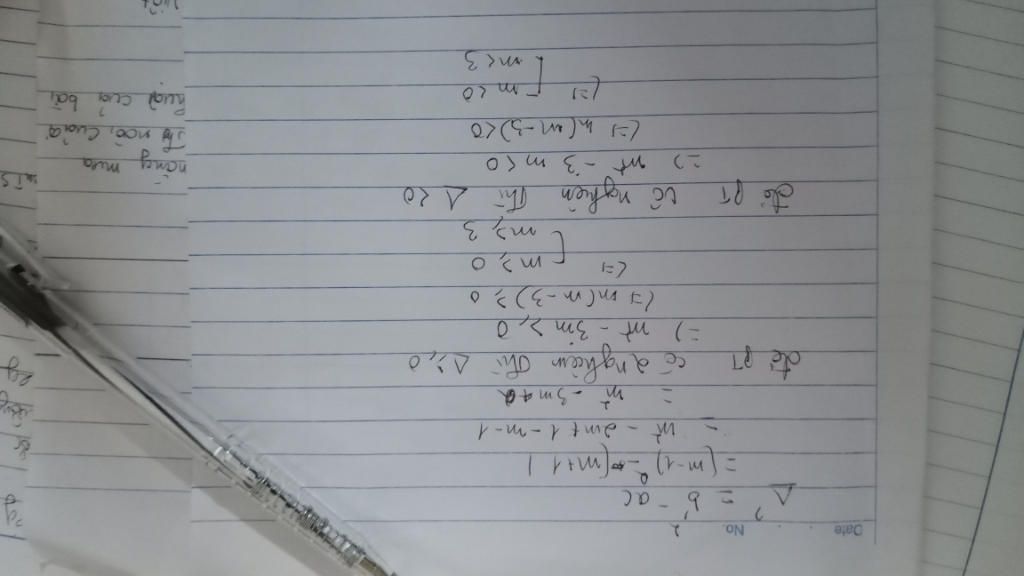 Date No
Δ' = b'² - ac
= (m-1)² - (m+1)
= m² - 2m + 1 - m - 1
= m² - 3m
để PT có 2 nghiệm thì Δ ≥ 0
=> m² - 3m ≥ 0
<=> m(m-3) ≥ 0
<=> [ m ≥ 0
m ≥ 3
để PT có nghiệm thì Δ < 0
=> m² - 3m < 0
<=> m(m-3) < 0
<=> [ m < 0
m < 3
nắng mưa
nói của
của bài